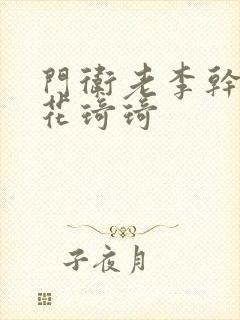 門衛老李幹
花琦琦
子夜月